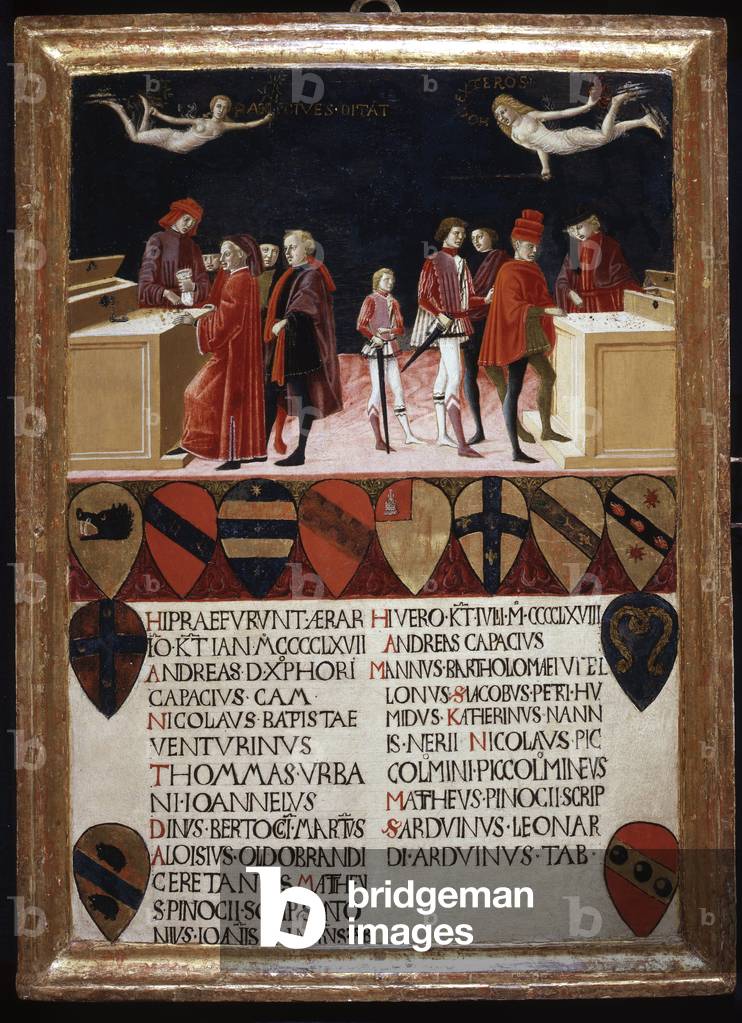 PAX CIVES DITAT
HI PRAEFVRVNT ÆRAR
IO KT̄ IAN M̊ CCCCLXVII
ANDREAS D XP̊HORI
CAPACIVS CAM
NICOLAVS BAPISTAE
VENTVRINVS
THOMMAS VRBA
NI IOANNELVS
DINVS BERTOCCI MARTIVS
ALOISIVS OLDOBRANDI
CERETAN MATHEI
S PINOCII
NIVS IOANIS
HI VERO KT̄ IVLII M̊ CCCCLXVIII
ANDREAS CAPACIVS
MANNVS BARTHOLOMAEI VITEL
LONVS S IACOBVS PETRI HV
MIDVS KATHERINVS NANN
IS NERII NICOLAVS PIC
COLMINI PICCOLMINEVS
MATHEVS PINOCII SCRIP
S ARDVINVS LEONAR
DI ARDVINVS TAB
b bridgeman
images